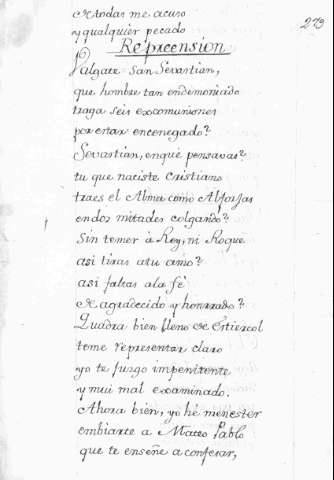 de todas me acuso
y qualquier pecado
273
Reprecension
Valgate San Sevastian,
que hombre tan endemoniado
traga seis excomuniones
por estar encenegado?
Sevastian, en que pensavas?
tu que naciste cristiano
traes el Alma como Alforjas
en dos mitades colgando?
Sin temer à Rey, ni Roque
asi tiras a tu amo?
asi faltas a la fè
de agradecido y honrrado?
Quadra bien lleno de Estiercol
teme representar claro
yo te juzgo impenitente
y mui mal examinado.
Ahora bien, yo hè menester
embiarte a Mateo Pablo
que te enseñe a confesar,